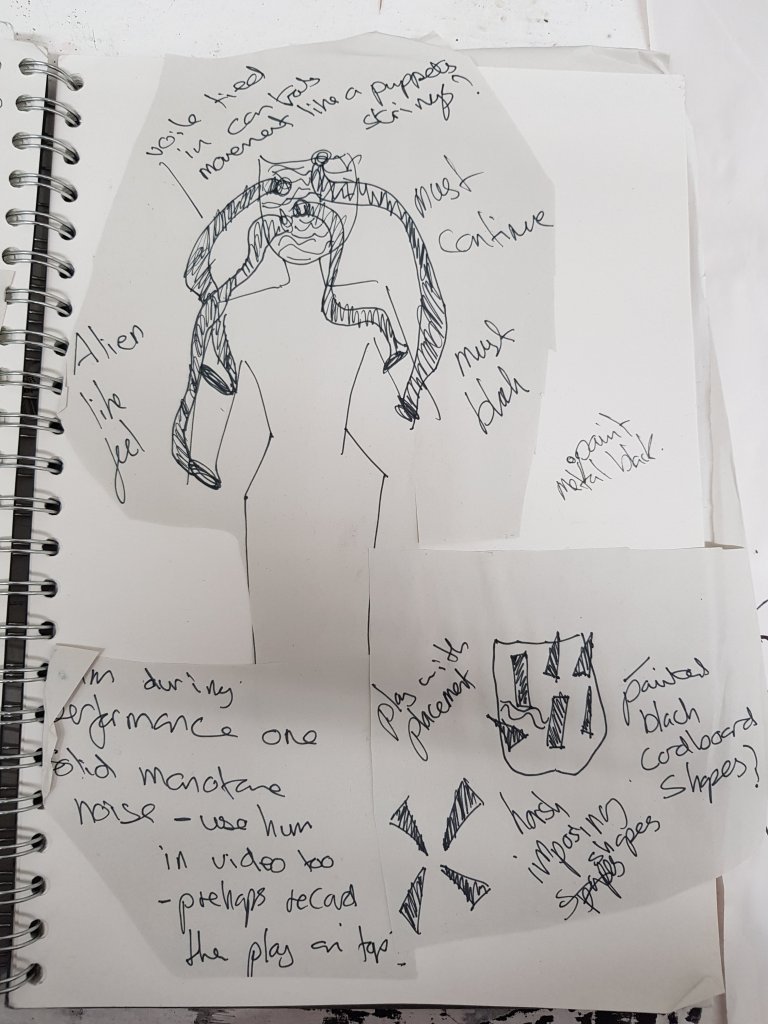 voile tied
in controls
movement like a puppets
strings?
must
continue
Alien
like
feel
must
blah
paint
metal blak.
play with
placement
painted
black
cardboard
shapes?
harsh
imposing
shapes
during
erformance one
olid monotone
noise - use hum
in video too
- prehaps record
the play on top.